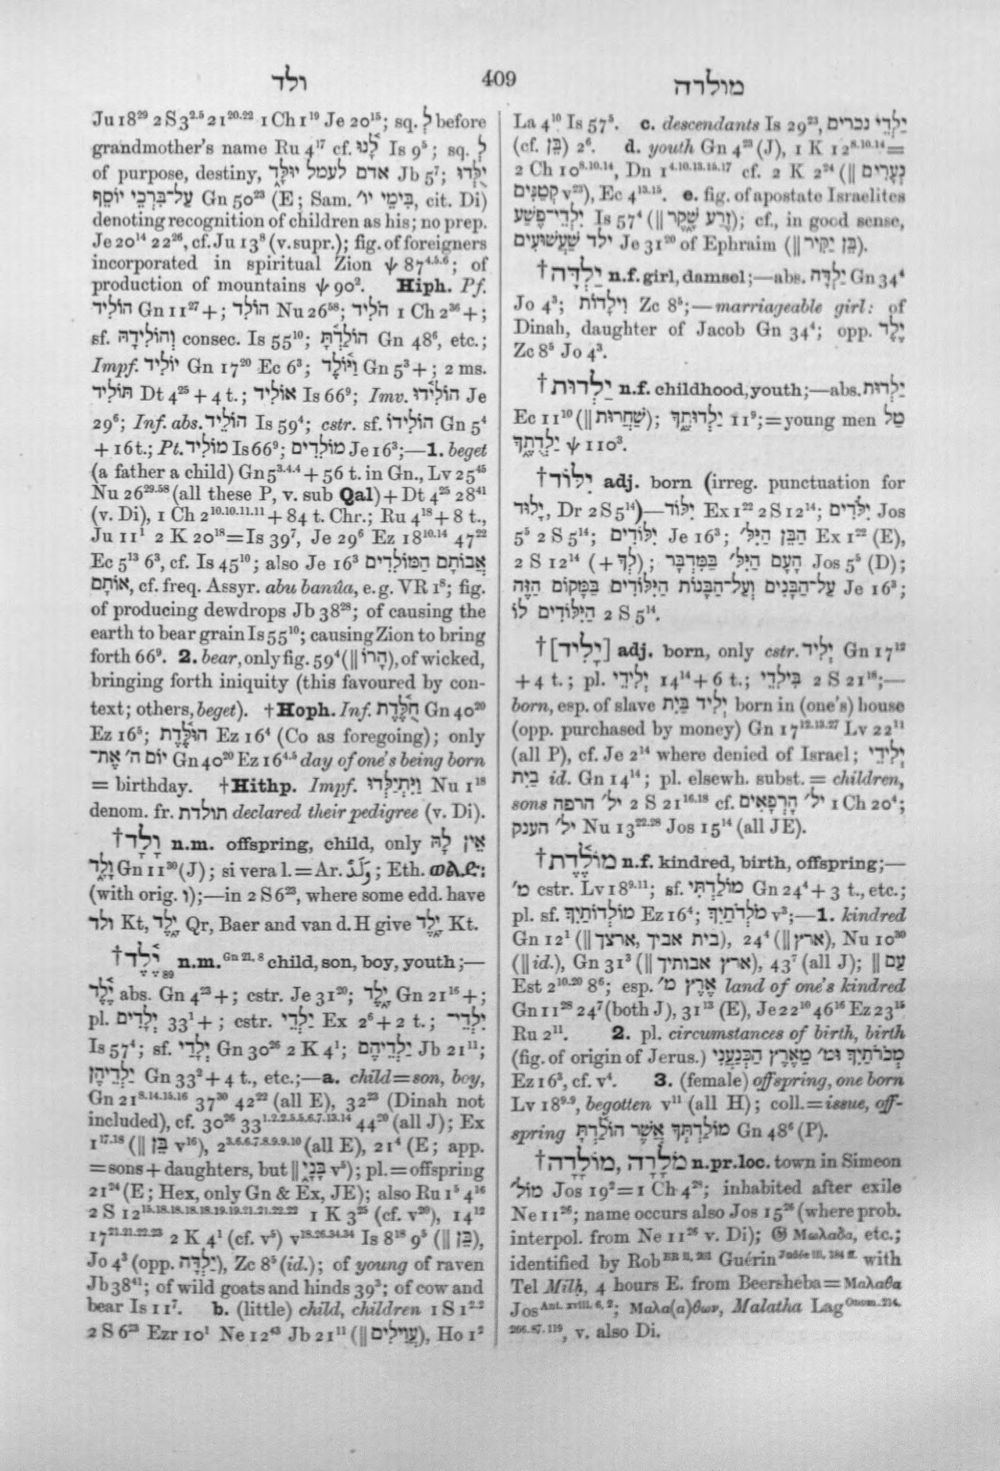 ולד 409 מולדה
Ju 18²⁹ 2 S 3²·⁵ 21²⁰·²² 1 Ch 1¹⁹ Je 20¹⁵; sq. לְ before
grandmother's name Ru 4¹⁷ cf. לָנוּ Is 9⁵; sq. לְ
of purpose, destiny, אדם לעמל יוּלָּד Jb 5⁷; יֻלְּדוּ
עַל־בִּרְכֵי יוֹסֵף Gn 50²³ (E; Sam. בִּימֵי יו׳, cit. Di)
denoting recognition of children as his; no prep.
Je 20¹⁴ 22²⁶, cf. Ju 13⁸ (v. supr.); fig. of foreigners
incorporated in spiritual Zion ψ 87⁴·⁵·⁶; of
production of mountains ψ 90². Hiph. Pf.
הוֹלִיד Gn 11²⁷ +; הוֹלִד Nu 26⁵⁸; הֹלִיד 1 Ch 2³⁶ +;
sf. וְהוֹלִידָהּ consec. Is 55¹⁰; הוֹלַדְתָּ Gn 48⁶, etc.;
Impf. יוֹלִיד Gn 17²⁰ Ec 6³; וַיּוֹלֶד Gn 5³ +; 2 ms.
תּוֹלִיד Dt 4²⁵ + 4 t.; אוֹלִיד Is 66⁹; Imv. הוֹלִידוּ Je
29⁶; Inf. abs. הוֹלֵיד Is 59⁴; cstr. sf. הוֹלִידוֹ Gn 5⁴
+ 16 t.; Pt. מוֹלִיד Is 66⁹; מוֹלִדִים Je 16³;—1. beget
(a father a child) Gn 5³·⁴·⁴ + 56 t. in Gn., Lv 25⁴⁵
Nu 26²⁹·⁵⁸ (all these P, v. sub Qal) + Dt 4²⁵ 28⁴¹
(v. Di), 1 Ch 2¹⁰·¹⁰·¹¹·¹¹ + 84 t. Chr.; Ru 4¹⁸ + 8 t.,
Ju 11¹ 2 K 20¹⁸ = Is 39⁷, Je 29⁶ Ez 18¹⁰·¹⁴ 47²²
Ec 5¹³ 6³, cf. Is 45¹⁰; also Je 16³ אֲבוֹתָם הַמּוֹלִדִים
אוֹתָם, cf. freq. Assyr. abu banûa, e.g. VR 1⁸; fig.
of producing dewdrops Jb 38²⁸; of causing the
earth to bear grain Is 55¹⁰; causing Zion to bring
forth 66⁹. 2. bear, only fig. 59⁴ (‖ הָרוֹ), of wicked,
bringing forth iniquity (this favoured by con-
text; others, beget). †Hoph. Inf. הֻלֶּדֶת Gn 40²⁰
Ez 16⁵; הוּלֶּדֶת Ez 16⁴ (Co as foregoing); only
יוֹם ה׳ אֶת־ Gn 40²⁰ Ez 16⁴·⁵ day of one's being born
= birthday. †Hithp. Impf. וַיִּתְיַלְדוּ Nu 1¹⁸
denom. fr. תולדת declared their pedigree (v. Di).
†וָלָד n.m. offspring, child, only אֵין לָהּ
וָלָד Gn 11³⁰ (J); si vera l. = Ar. وَلَدٌ; Eth. ወልድ:
(with orig. ו);—in 2 S 6²³, where some edd. have
ולד Kt, יֶלֶד Qr, Baer and van d. H give יֶלֶד Kt.
†יֶלֶד ₈₉ n.m. Gn 21, 8 child, son, boy, youth;—
יֶלֶד abs. Gn 4²³ +; cstr. Je 31²⁰; יָלֶד Gn 21¹⁶ +;
pl. יְלָדִים 33¹ +; cstr. יַלְדֵי Ex 2⁶ + 2 t.; יִלְדֵי־
Is 57⁴; sf. יְלָדַי Gn 30²⁶ 2 K 4¹; יַלְדֵיהֶם Jb 21¹¹;
יַלְדֵיהֶן Gn 33² + 4 t., etc.;—a. child = son, boy,
Gn 21⁸·¹⁴·¹⁵·¹⁶ 37³⁰ 42²² (all E), 32²³ (Dinah not
included), cf. 30²⁶ 33¹·²·²·⁵·⁵·⁶·⁷·¹³·¹⁴ 44²⁰ (all J); Ex
1¹⁷·¹⁸ (‖ בֵּן v¹⁶), 2³·⁶·⁶·⁷·⁸·⁹·⁹·¹⁰ (all E), 21⁴ (E; app.
= sons + daughters, but ‖ בָּנַי v⁵); pl. = offspring
21²⁴ (E; Hex, only Gn & Ex, JE); also Ru 1⁵ 4¹⁶
2 S 12¹⁵·¹⁸·¹⁸·¹⁸·¹⁸·¹⁹·¹⁹·²¹·²¹·²²·²² 1 K 3²⁵ (cf. v²⁰), 14¹²
17²¹·²¹·²²·²³ 2 K 4¹ (cf. v⁵) v¹⁸·²⁶·³⁴·³⁴ Is 8¹⁸ 9⁵ (‖ בֵּן),
Jo 4³ (opp. יַלְדָּה), Zc 8⁵ (id.); of young of raven
Jb 38⁴¹; of wild goats and hinds 39³; of cow and
bear Is 11⁷. b. (little) child, children 1 S 1²·²
2 S 6²³ Ezr 10¹ Ne 12⁴³ Jb 21¹¹ (‖ עֲוִילִים), Ho 1²
La 4¹⁰ Is 57⁵. c. descendants Is 29²³, יַלְדֵי נכרים
(cf. בֵּן) 2⁶. d. youth Gn 4²³ (J), 1 K 12⁸·¹⁰·¹⁴ =
2 Ch 10⁸·¹⁰·¹⁴, Dn 1⁴·¹⁰·¹³·¹⁵·¹⁷ cf. 2 K 2²⁴ (‖ נְעָרִים
קְטַנִּים v²³), Ec 4¹³·¹⁵. e. fig. of apostate Israelites
יִלְדֵי־פֶשַׁע Is 57⁴ (‖ זֶרַע שֶׁקֶר); cf., in good sense,
ילד שַׁעֲשׁוּעִים Je 31²⁰ of Ephraim (‖ בֵּן יַקִּיר).
†יַלְדָּה n.f. girl, damsel;—abs. יַלְדָּה Gn 34⁴
Jo 4³; וִילָדוֹת Zc 8⁵;—marriageable girl: of
Dinah, daughter of Jacob Gn 34⁴; opp. יֶלֶד
Zc 8⁵ Jo 4³.
†יַלְדוּת n.f. childhood, youth;—abs. יַלְדוּת
Ec 11¹⁰ (‖ שַׁחֲרוּת); יַלְדוּתֶךָ 11⁹; = young men טַל
יַלְדֻתֶךָ ψ 110³.
†יִלּוֹד adj. born (irreg. punctuation for
יָלוּד, Dr 2 S 5¹⁴)—יִלּוֹד Ex 1²² 2 S 12¹⁴; יִלֹּדִים Jos
5⁵ 2 S 5¹⁴; יִלּוֹדִים Je 16³; הַבֵּן הַיִּל׳ Ex 1²² (E),
2 S 12¹⁴ (+ לְךָ); הָעָם הַיִּל׳ בַּמִּדְבָּר Jos 5⁵ (D);
עַל־הַבָּנִים וְעַל־הַבָּנוֹת הַיִּלּוֹדִים בַּמָּקוֹם הַזֶּה Je 16³;
הַיִּלּוֹדִים לוֹ 2 S 5¹⁴.
†[יָלִיד] adj. born, only cstr. יְלִיד Gn 17¹²
+ 4 t.; pl. יְלִידֵי 14¹⁴ + 6 t.; בִּילִדֵי 2 S 21¹⁸;—
born, esp. of slave יְלִיד בַּיִת born in (one's) house
(opp. purchased by money) Gn 17¹²·¹³·²⁷ Lv 22¹¹
(all P), cf. Je 2¹⁴ where denied of Israel; יְלִידֵי
בַיִת id. Gn 14¹⁴; pl. elsewh. subst. = children,
sons יל׳ הרפה 2 S 21¹⁶·¹⁸ cf. יל׳ הָרְפָאִים 1 Ch 20⁴;
יל׳ הענק Nu 13²²·²⁸ Jos 15¹⁴ (all JE).
†מוֹלֶדֶת n.f. kindred, birth, offspring;—
מ׳ cstr. Lv 18⁹·¹¹; sf. מוֹלַדְתִּי Gn 24⁴ + 3 t., etc.;
pl. sf. מוֹלְדוֹתַיִךְ Ez 16⁴; מֹלְדֹתַיִךְ v³;—1. kindred
Gn 12¹ (‖ בית אביך, ארצך), 24⁴ (‖ ארץ), Nu 10³⁰
(‖ id.), Gn 31³ (‖ ארץ אבותיך), 43⁷ (all J); ‖ עַם
Est 2¹⁰·²⁰ 8⁶; esp. אֶרֶץ מ׳ land of one's kindred
Gn 11²⁸ 24⁷ (both J), 31¹³ (E), Je 22¹⁰ 46¹⁶ Ez 23¹⁵
Ru 2¹¹. 2. pl. circumstances of birth, birth
(fig. of origin of Jerus.) מְכֹרֹתַיִךְ וּמ׳ מֵאֶרֶץ הַכְּנַעֲנִי
Ez 16³, cf. v⁴. 3. (female) offspring, one born
Lv 18⁹·⁹, begotten v¹¹ (all H); coll. = issue, off-
spring מוֹלַדְתְּךָ אֲשֶׁר הוֹלַדְתָּ Gn 48⁶ (P).
†מוֹלָדָה, מֹלָדָה n.pr.loc. town in Simeon
מוֹל׳ Jos 19² = 1 Ch 4²⁸; inhabited after exile
Ne 11²⁶; name occurs also Jos 15²⁶ (where prob.
interpol. from Ne 11²⁶ v. Di); 𝔊 Μωλαδα, etc.;
identified by Rob BR II, 201 Guérin Judée III, 184 ff. with
Tel Milḥ, 4 hours E. from Beersheba = Μαλαθα
Jos Ant. xviii. 6, 2; Μαλα(α)θων, Malatha Lag Onom. 214,
266. 87. 119, v. also Di.